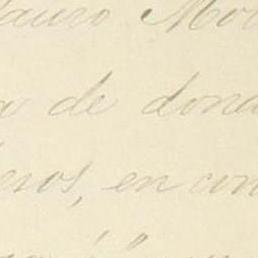 auro Mo
a de dond
eros, en con